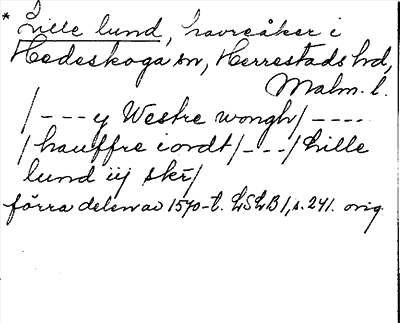 * Lille lund, havreåker i
Hedeskoga sn, Herrestads hd,
Malm. l.
/---y Westre wongh/----
/hauffre iordt/---/Lille
lund iij skr/
förra delen av 1570-t. LSLB 1, s. 241. orig.